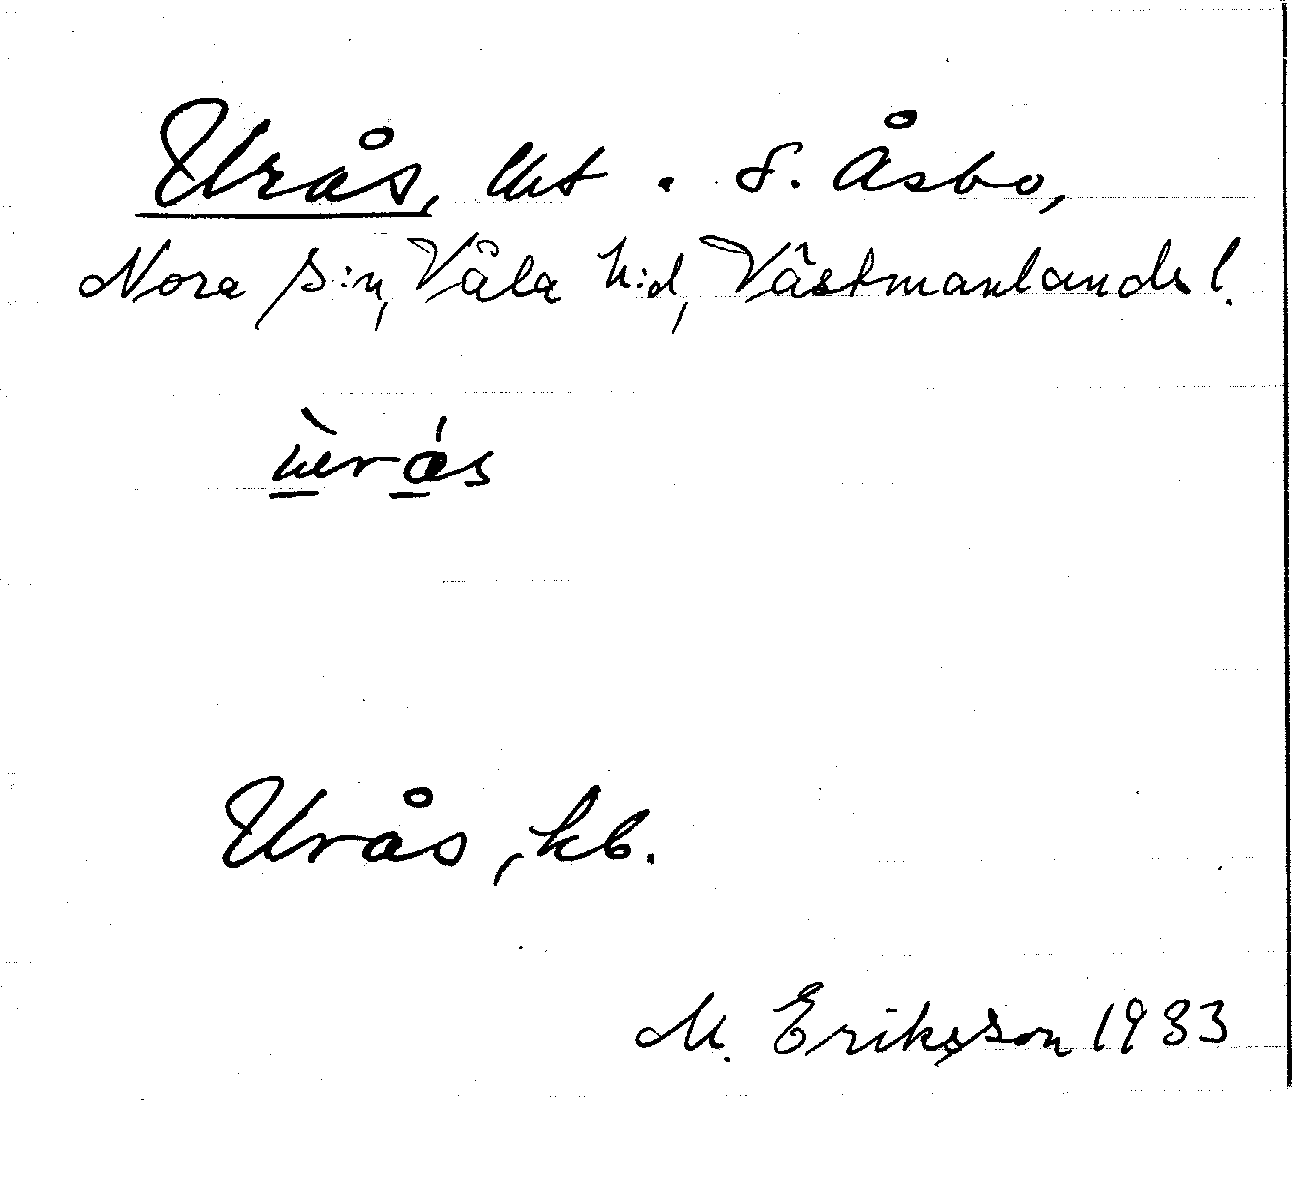 Urås, lht. S. Åsbo,
Nora s:n, Våla h:d, Västmanlands l.
Urås, kb.
M. Eriksson 1933